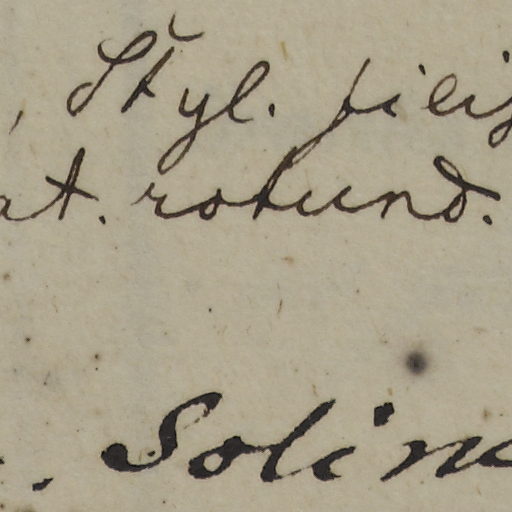 , Styl. filif
at. rotund.
. Solin